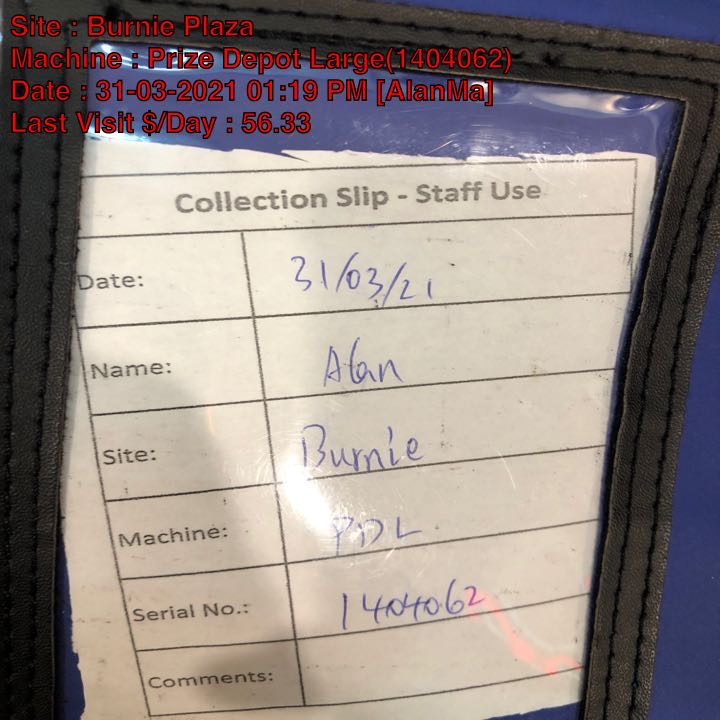 Site : Burnie Plaza
Machine : Prize Depot Large(1404062)
Date : 31-03-2021 01:19 PM [AlanMa]
Last Visit $/Day : 56.33
Collection Slip - Staff Use
Date: 31/03/21
Name: Alan
Site: Burnie
Machine: PDL
Serial No.: 1404062
Comments: